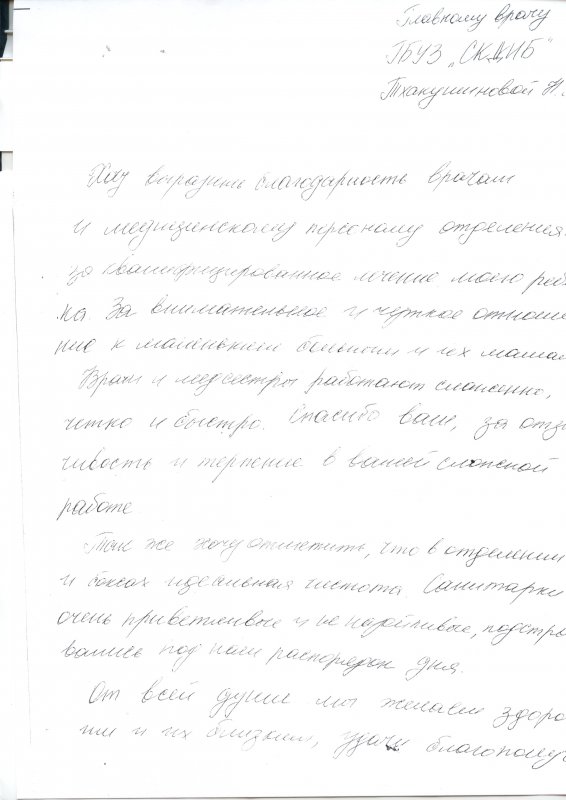 Главному врачу
ГБУЗ „СКДИБ"
Тхакушиновой Н.
Хочу выразить благодарность врачам
и медицинскому персоналу отделения
за квалифицированное лечение моего ребё
ка. За внимательное и чуткое отноше
ние к маленьким больным и их мамам
Врачи и медсестры работают слаженно,
четко и быстро. Спасибо вам, за отзы
чивость и терпение в вашей сложной
работе.
Так же хочу отметить, что в отделении
и боксах идеальная чистота. Санитарки
очень приветливые и не назойливые, подстра
вались под наш распорядок дня.
От всей души мы желаем здоро
им и их близким, удачи благополуч